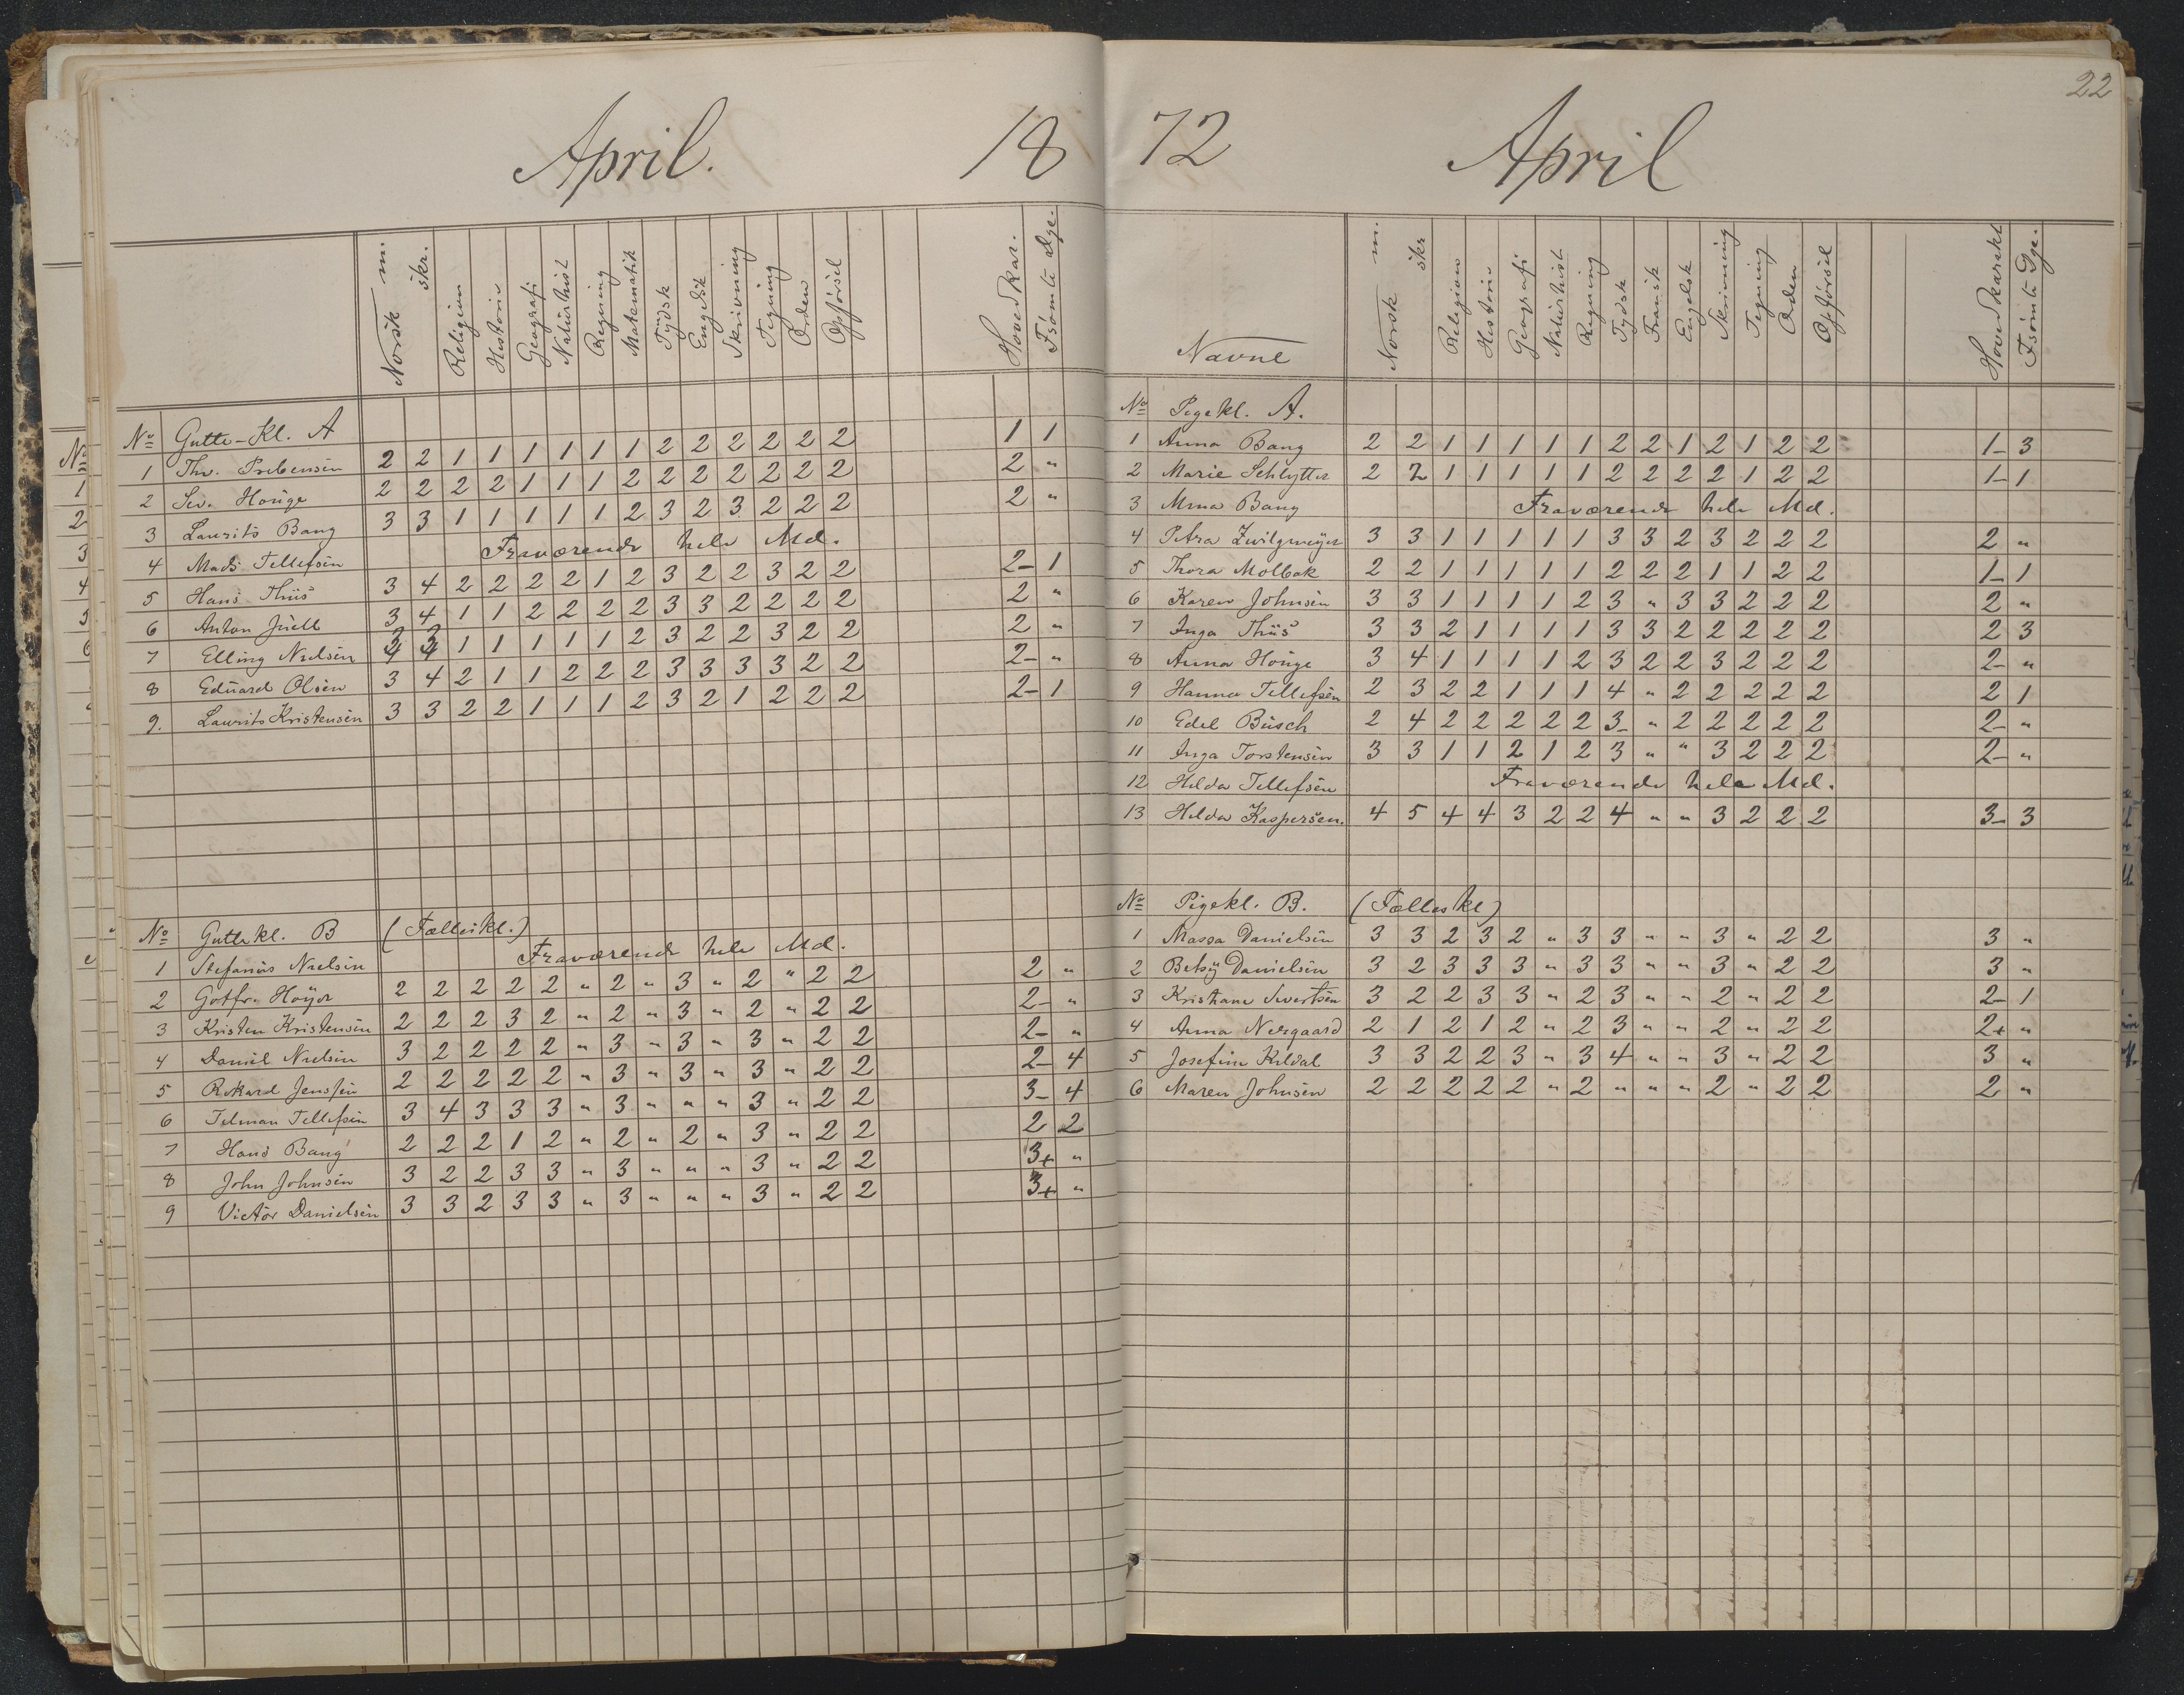 22
April. 18
Norsk m. skr. Religion Historie Geografi Naturhist Regning Matematik Tydsk Engelsk Skrivning Tegning Orden Opførsel Hovedkar. Fsömte Dge.
No Gutte-Kl. A
1 Thv. Prebensen 2 2 1 1 1 1 1 1 2 2 2 2 2 2 2 1 1
2 Sev. Houge 2 2 2 2 1 1 1 2 2 2 2 2 2 2 2 "
3 Laurits Bang 3 3 1 1 1 1 1 2 3 2 3 2 2 2 2 "
4 Mads Tellefsen Fraværende hele Md.
5 Hans Thiis 3 4 2 2 2 2 1 2 3 2 2 3 2 2 2- 1
6 Anton Juell 3 4 1 1 2 2 2 2 3 3 2 2 2 2 2 "
7 Elling Nielsen 3 3 1 1 1 1 1 2 3 2 2 3 2 2 2 "
8 Eduard Olsen 3 4 2 1 1 2 2 2 3 3 3 3 2 2 2- "
9. Laurits Kristensen 3 3 2 2 1 1 1 2 3 2 1 2 2 2 2- 1
No Guttekl. B (Fælleskl.)
1 Stefanus Nielsen Fraværende hele Md.
2 Gotfr. Høyer 2 2 2 2 2 " 2 " 3 " 2 " 2 2 2 "
3 Kristen Kristensen 2 2 2 3 2 " 2 " 3 " 2 " 2 2 2- "
4 Daniel Nielsen 3 2 2 2 2 " 3 " 3 " 3 " 2 2 2- "
5 Rikard Jenssen 2 2 2 2 2 " 3 " 3 " 3 " 2 2 2- 4
6 Telman Tellefsen 3 4 3 3 3 " 3 " " " 3 " 2 2 3- 4
7 Hans Bang 2 2 2 1 2 " 2 " 2 " 3 " 2 2 2 2
8 John Johnsen 3 2 2 3 3 " 3 " " " 3 " 2 2 3+ "
9 Victor Danielsen 3 3 2 3 3 " 3 " " " 3 " 2 2 3+ "
72 April
Navne Norsk m. skr Religion Historie Geografi Naturhist Regning Tydsk Fransk Engelsk Skrivning Tegning Orden Opførsel Hovedkarakt Fsömte Dge.
No Pigekl. A.
1 Anna Bang 2 2 1 1 1 1 1 2 2 1 2 1 2 2 1- 3
2 Marie Schlytter 2 2 1 1 1 1 1 2 2 2 2 1 2 2 1- 1
3 Mina Bang Fraværende hele Md.
4 Petra Zwilgmeyer 3 3 1 1 1 1 1 3 3 2 3 2 2 2 2 "
5 Thora Molbak 2 2 1 1 1 1 1 2 2 2 1 1 2 2 1- 1
6 Karen Johnsen 3 3 1 1 1 1 2 3 " 3 3 2 2 2 2 "
7 Inga Thiis 3 3 2 1 1 1 1 3 3 2 2 2 2 2 2 3
8 Anna Houge 3 4 1 1 1 1 2 3 2 2 3 2 2 2 2- "
9 Hanna Tellefsen 2 3 2 2 1 1 1 4 " 2 2 2 2 2 2 1
10 Edel Busch 2 4 2 2 2 2 2 3- " 2 2 2 2 2 2- "
11 Inga Torstensen 3 3 1 1 2 1 2 3 " " 3 2 2 2 2- "
12 Hilda Tellefsen Fraværende hele Md.
13 Hilda Kaspersen. 4 5 4 4 3 2 2 4 " " 3 2 2 2 3- 3
No Pigekl. B. (Fælles kl)
1 Massa Danielsen 3 3 2 3 2 " 3 3 " " 3 " 2 2 3 "
2 Betsy Danielsen 3 2 3 3 3 " 3 3 " " 3 " 2 2 3 "
3 Kristiane Sivertsen 3 2 2 3 3 " 2 3 " " 2 " 2 2 2- 1
4 Anna Nergaard 2 1 2 1 2 " 2 3 " " 2 " 2 2 2+ "
5 Josefine Kildal 3 3 2 2 3 " 3 4 " " 3 " 2 2 3 "
6 Maren Johnsen 2 2 2 2 2 " 2 " " " 2 " 2 2 2 "